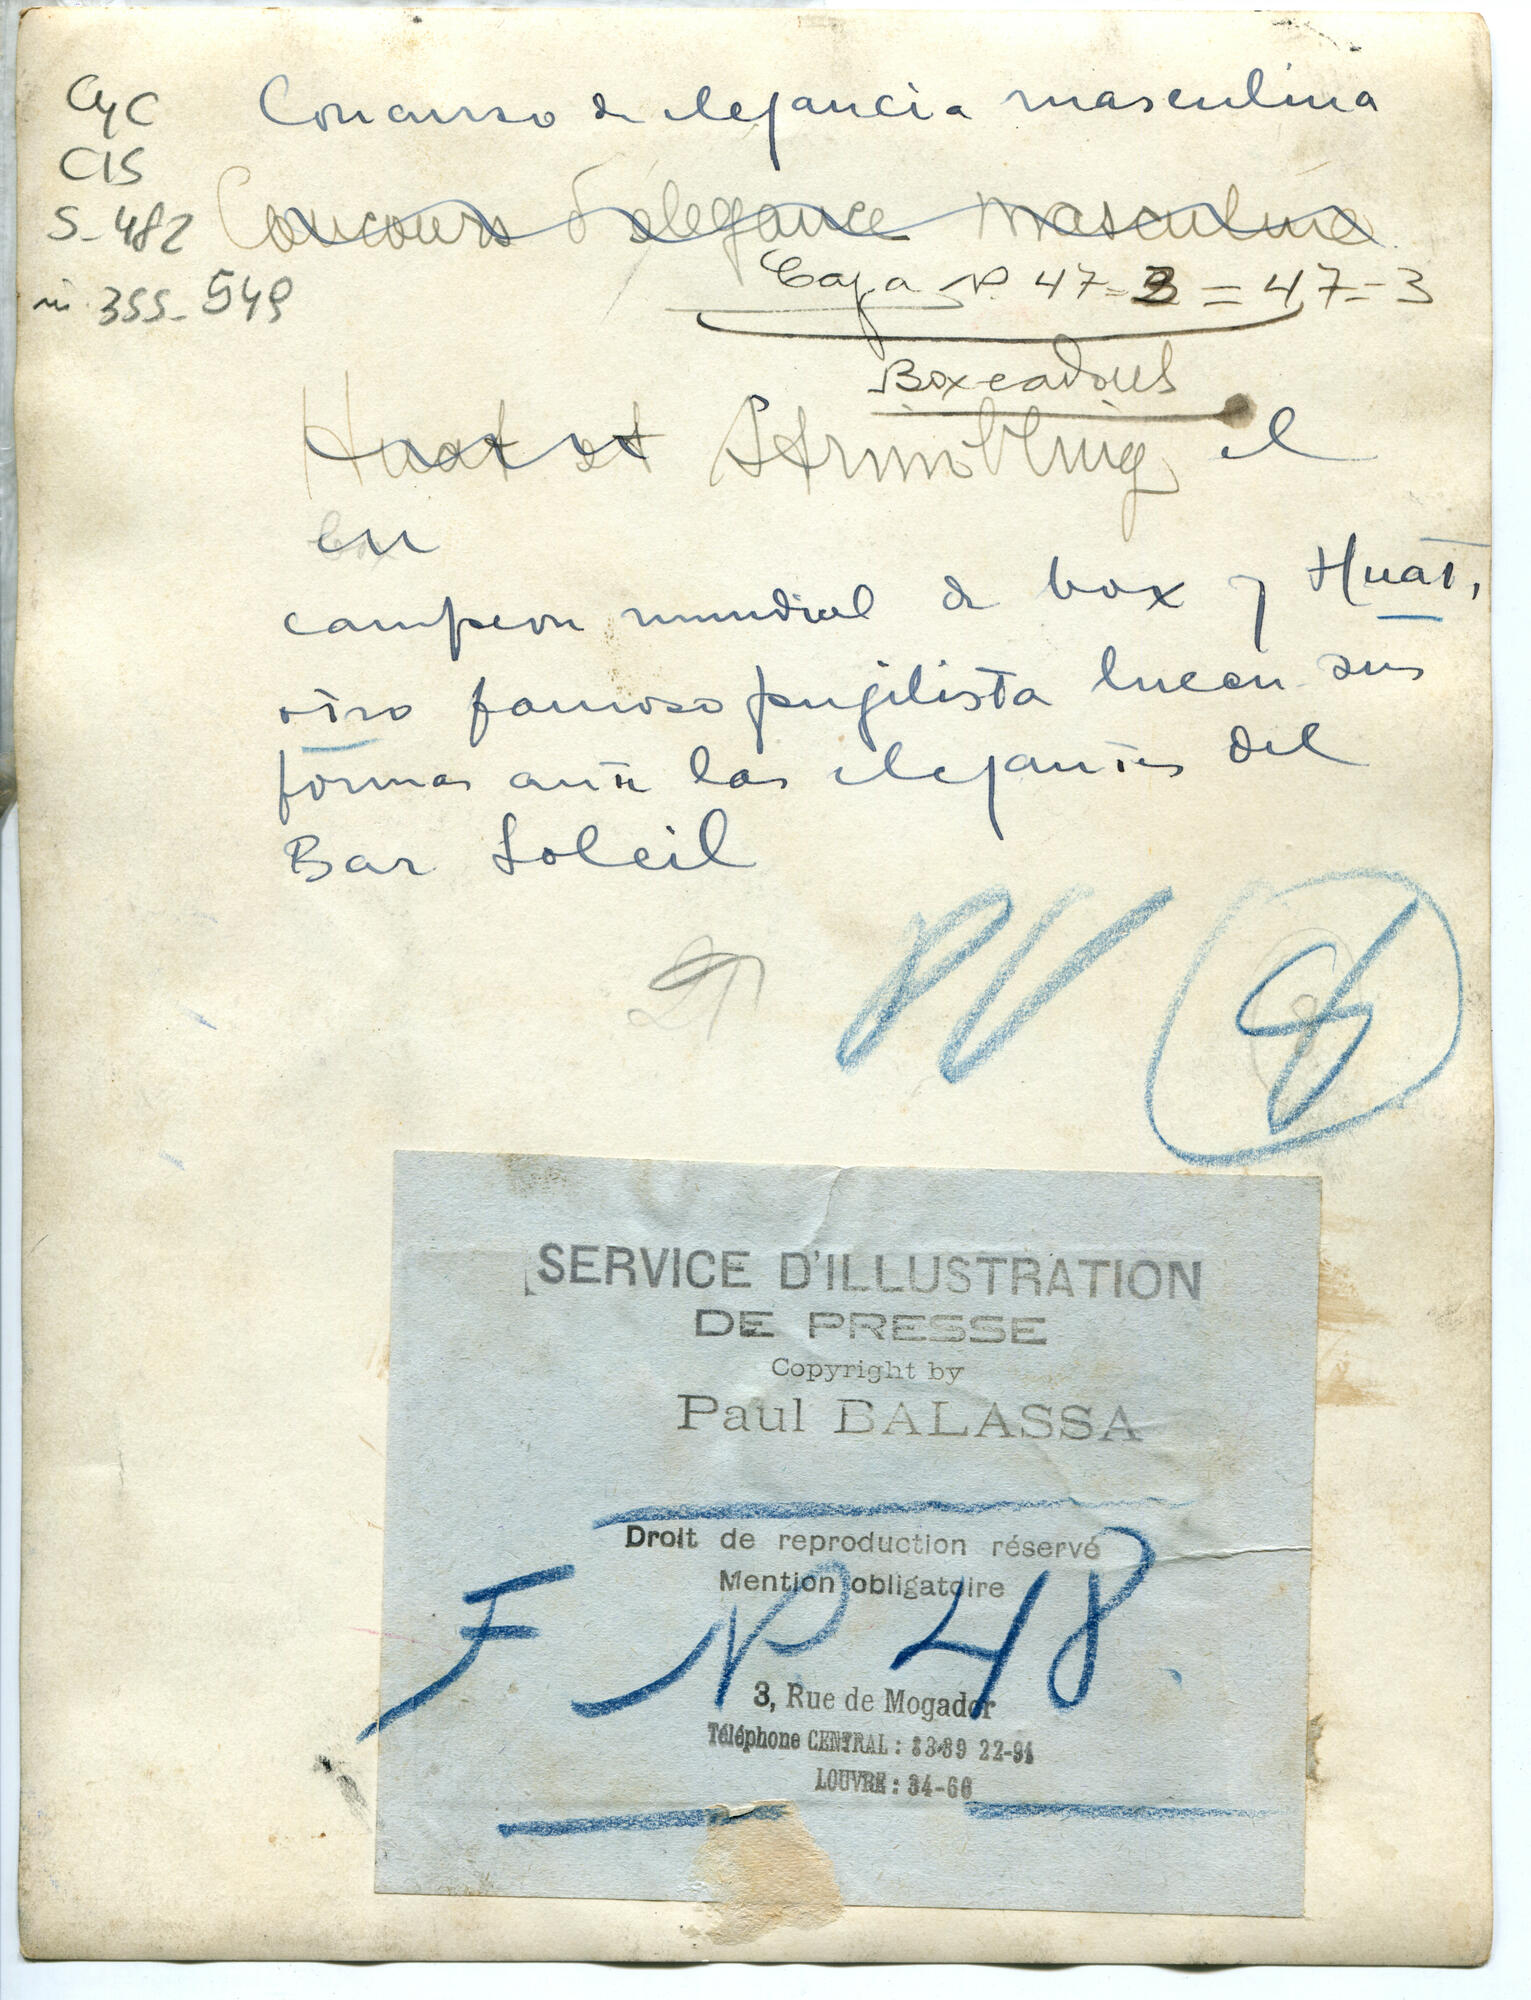 CyC
CIS
S-482
nº 355-549
Concurso de elegancia masculina
Concours d'elegance masculine
Caja Nº 47=3 = 47=3
Boxeadores
Huat et Strimbling el
en
campeon mundial de box y Huat,
otro famoso pugilista lucen sus
formas ante las elegantes del
Bar Soleil
SERVICE D'ILLUSTRATION
DE PRESSE
Copyright by
Paul BALASSA
Droit de reproduction réservé
Mention obligatoire
F Nº 48.
3, Rue de Mogador
Téléphone CENTRAL: 83-89 22-91
LOUVRE: 34-66